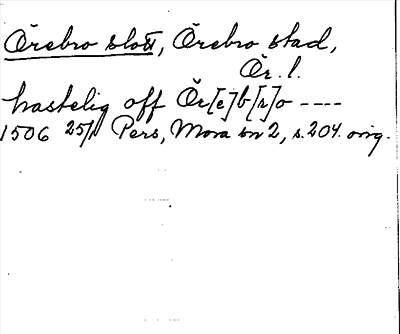 Örebro slott, Örebro stad,
Ör. l.
hastelig off Ör[e]b[r]o ----
1506 25/1 Pers, Mora sn 2, s. 204. orig.